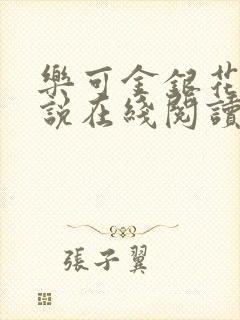 樂可金銀花
說在綫閱讀
張子翼